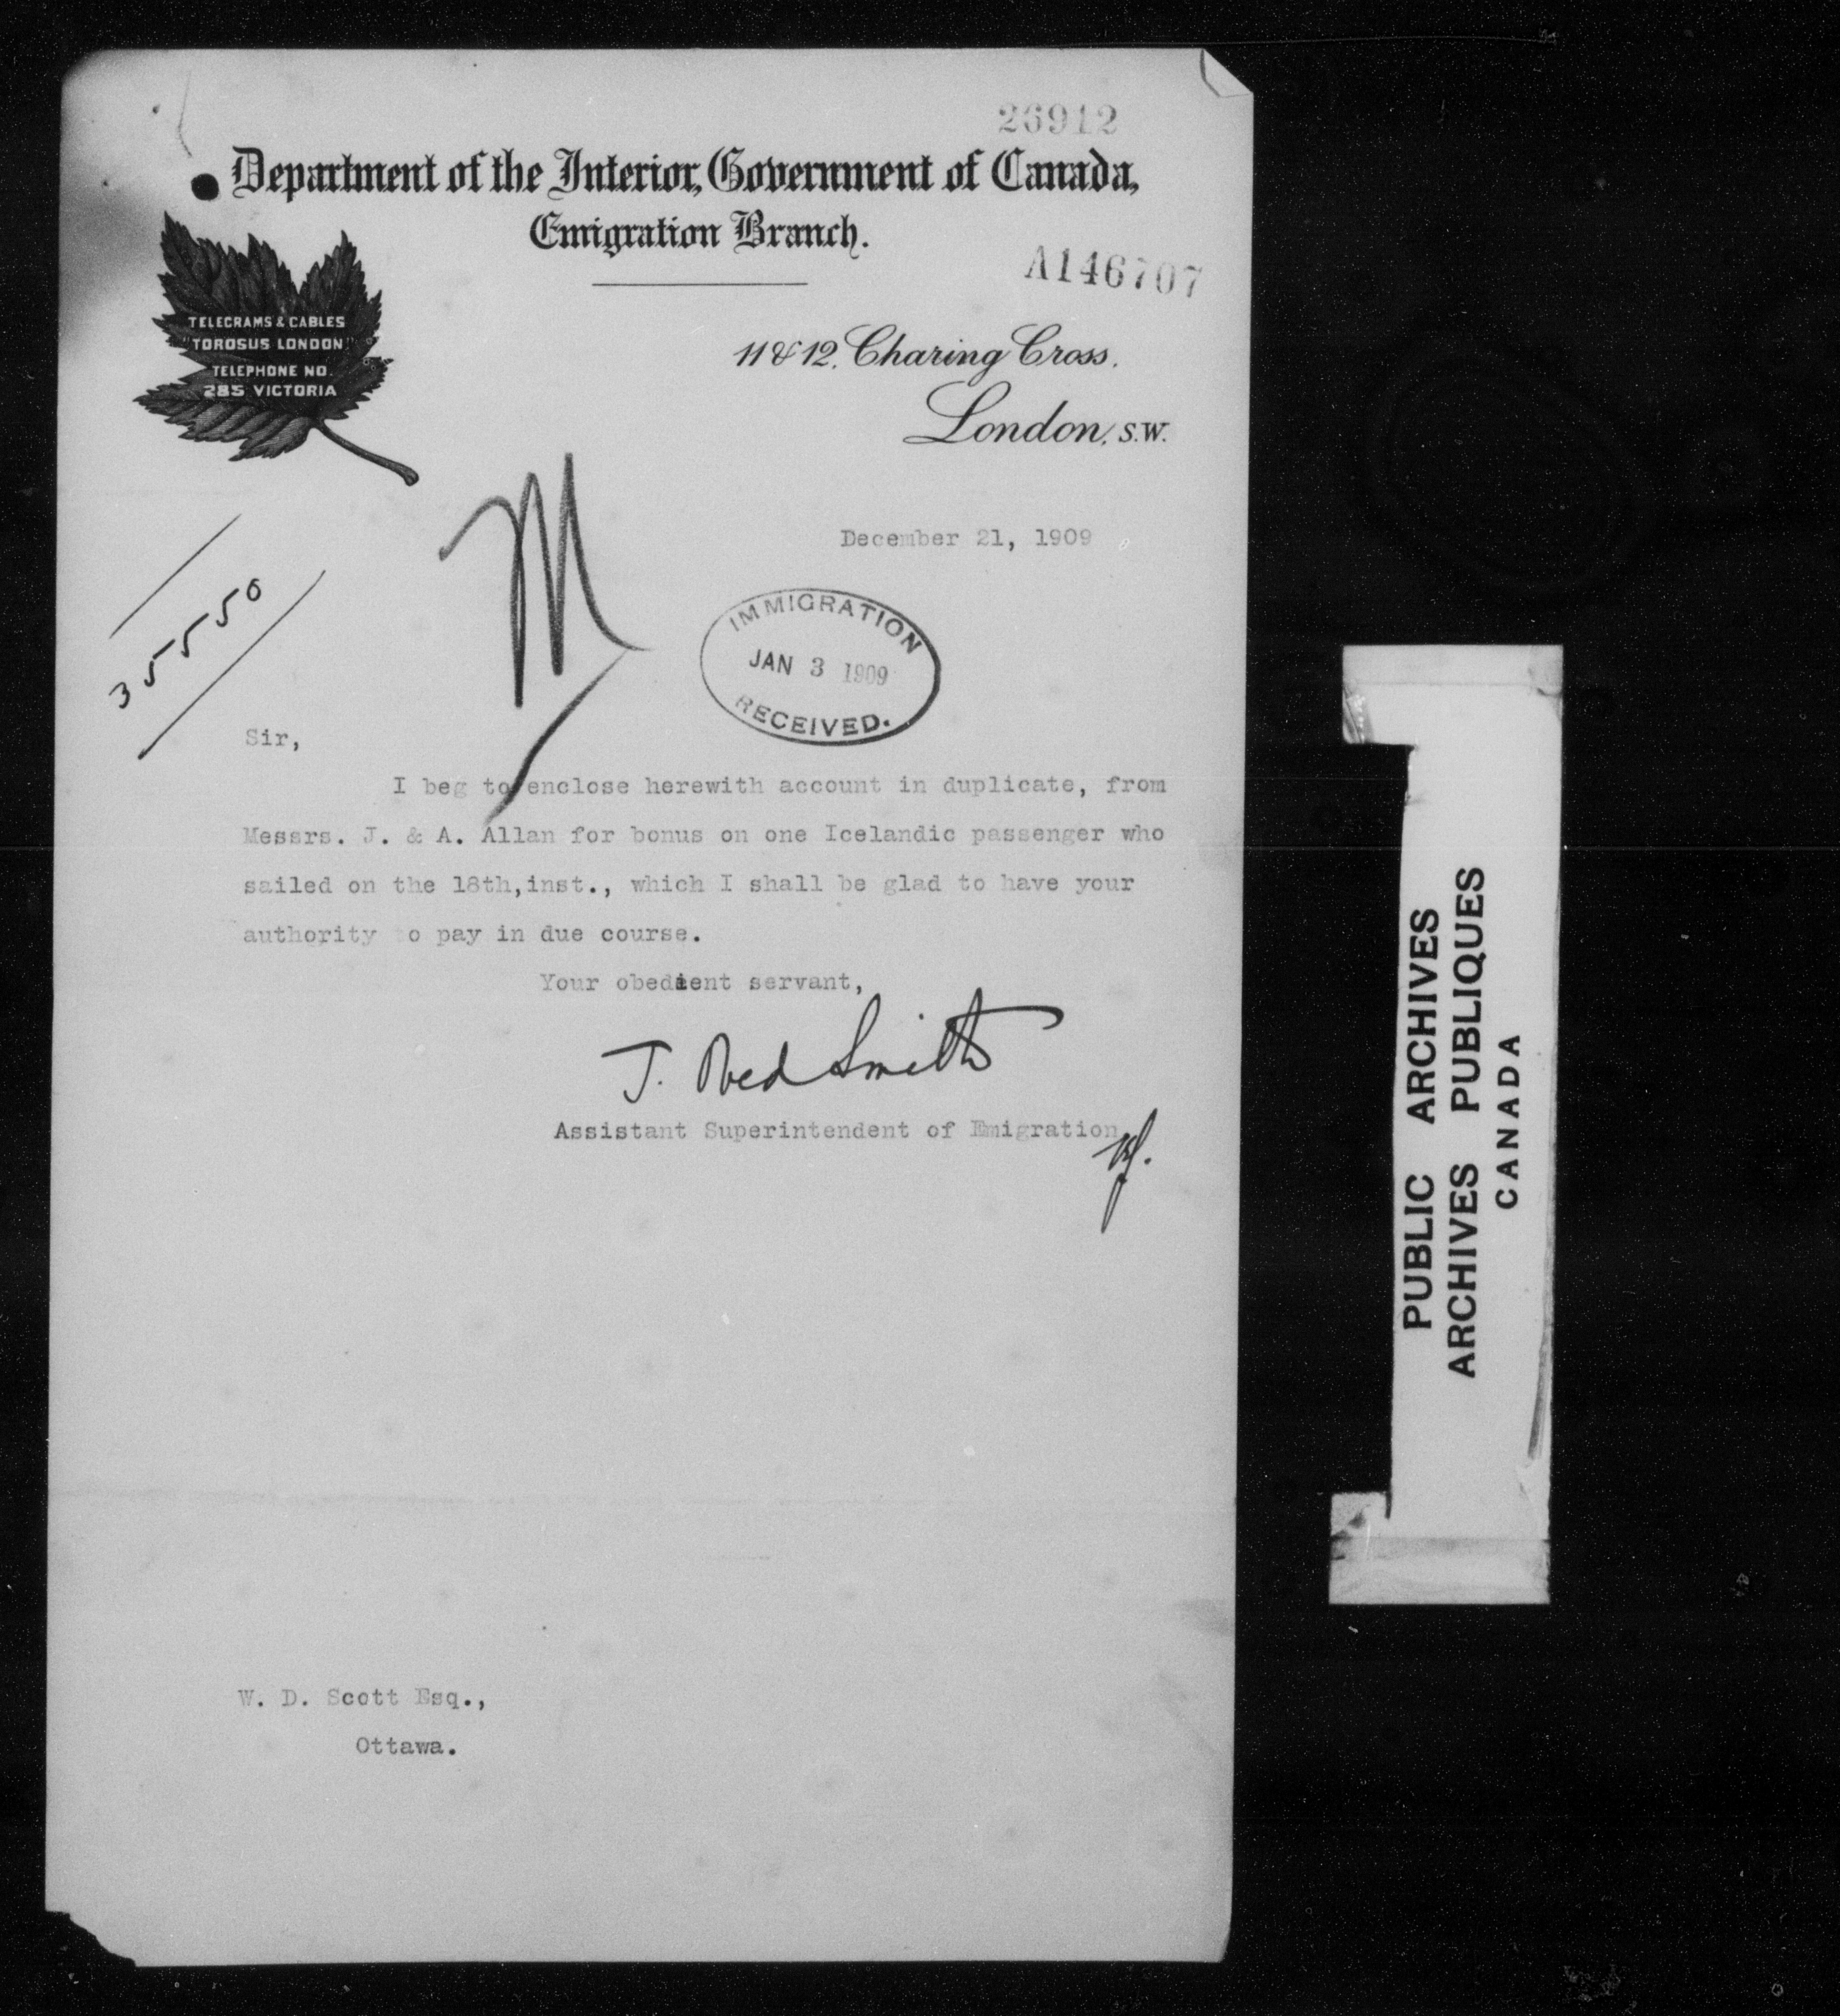 26912
Department of the Interior, Government of Canada,
Emigration Branch.
A146707
TELEGRAMS & CABLES
"TOROSUS LONDON"
TELEPHONE NO.
285 VICTORIA
11 & 12, Charing Cross,
London, S.W.
M
December 21, 1909
35550
IMMIGRATION
JAN 3 1909
RECEIVED.
Sir,
I beg to enclose herewith account in duplicate, from
Messrs. J. & A. Allan for bonus on one Icelandic passenger who
sailed on the 18th, inst., which I shall be glad to have your
authority to pay in due course.
Your obedient servant,
J. Obed Smith
Assistant Superintendent of Emigration
W. D. Scott Esq.,
Ottawa.
PUBLIC ARCHIVES
ARCHIVES PUBLIQUES
CANADA